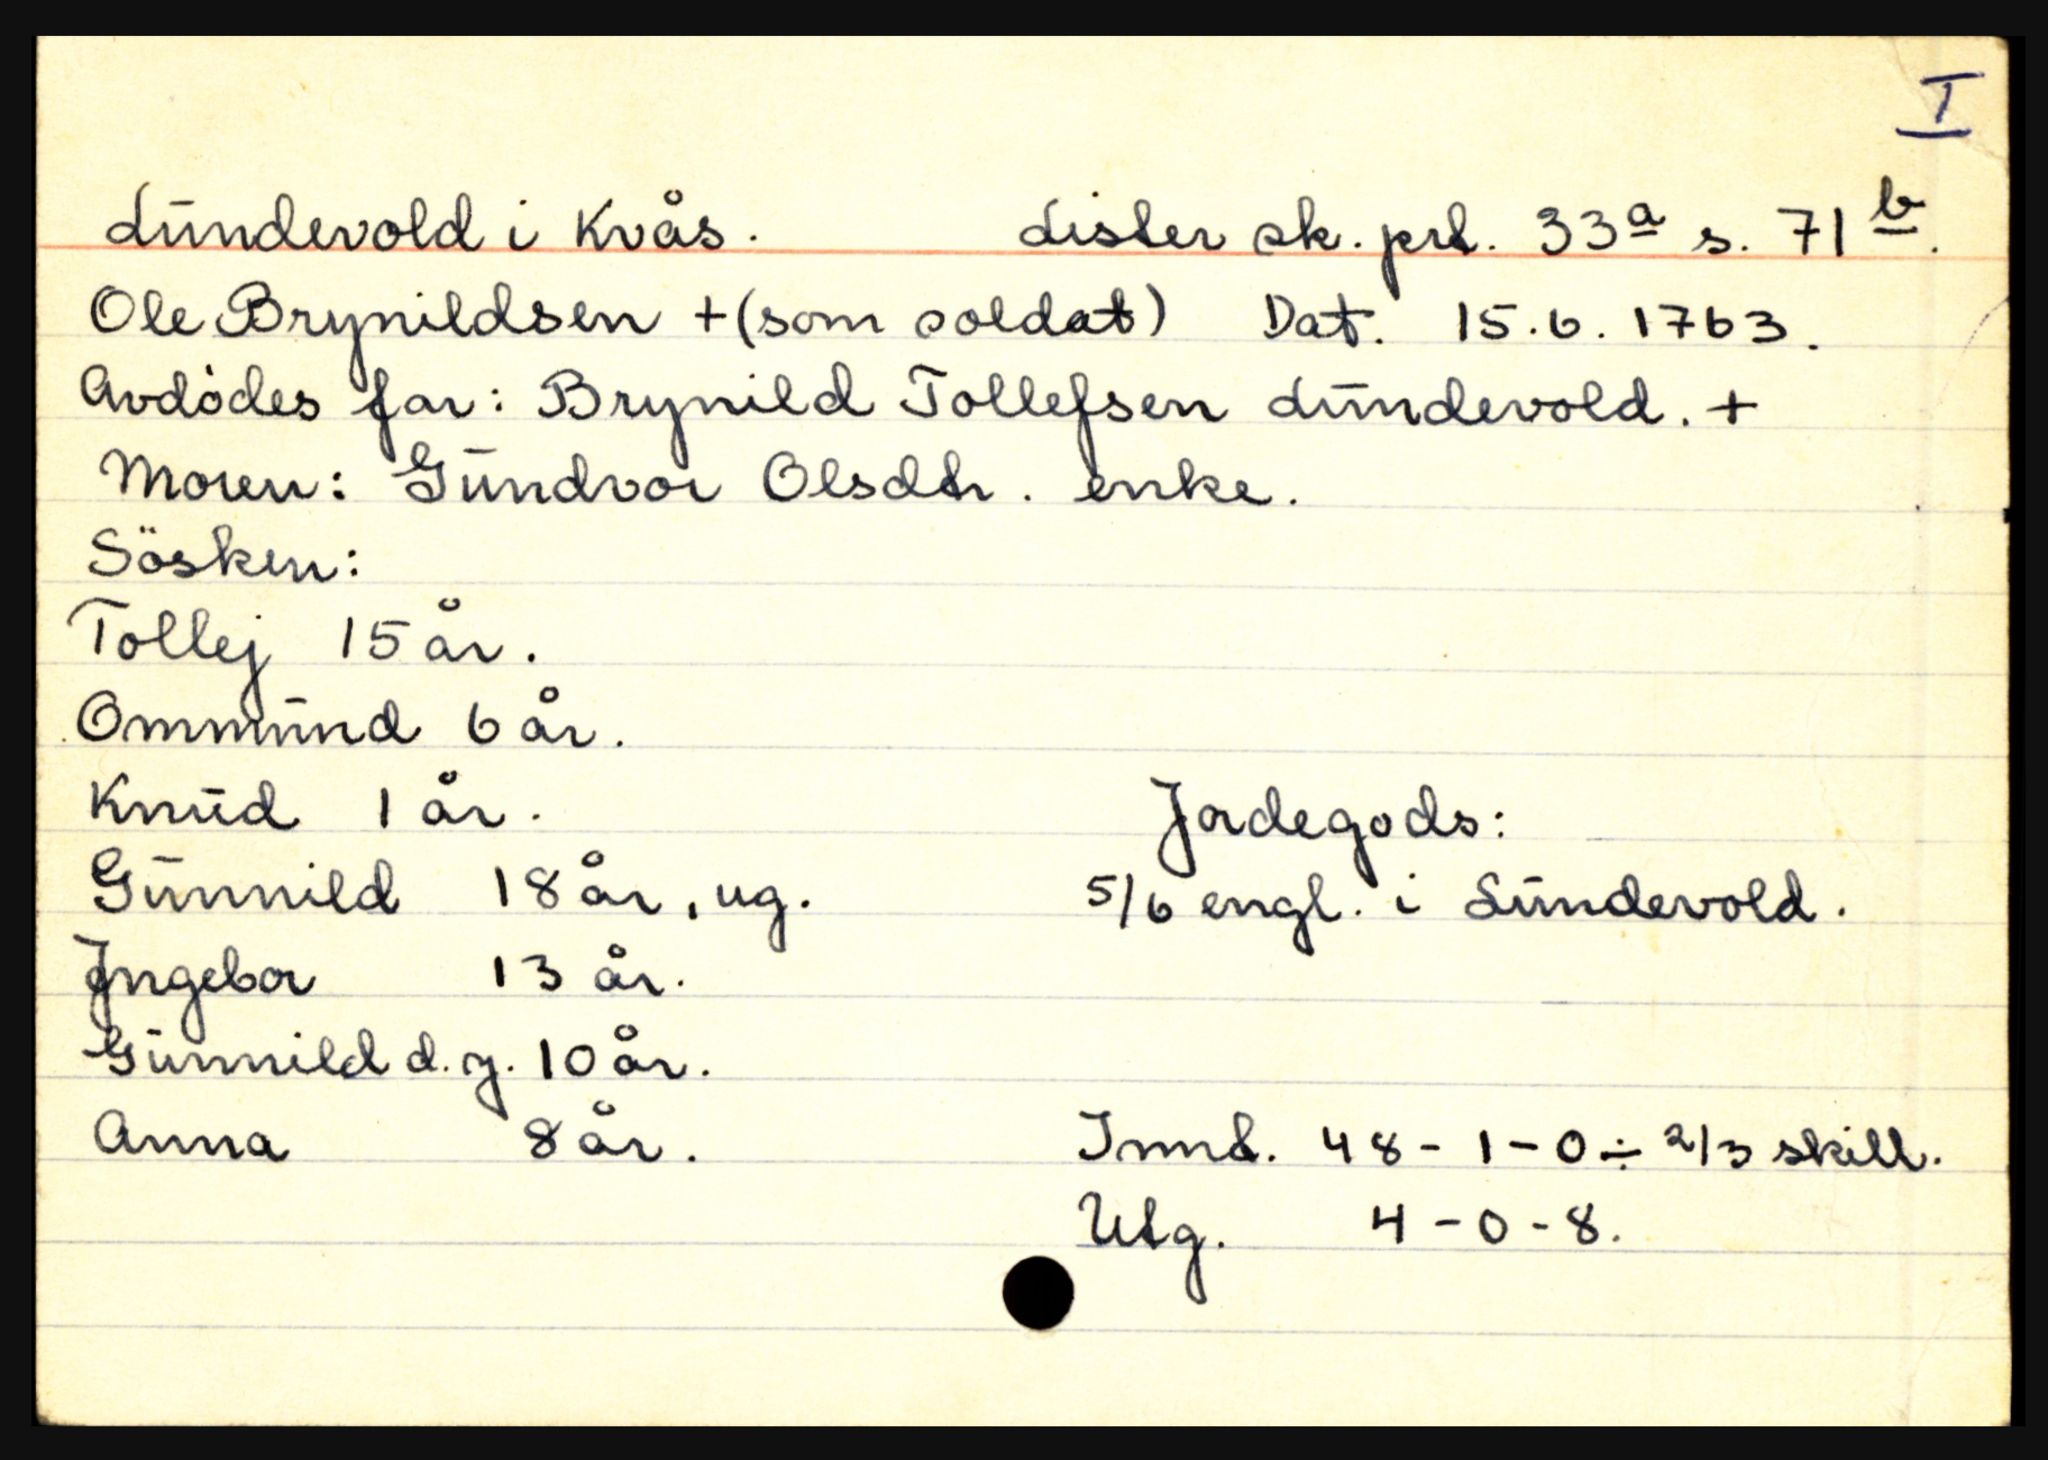 I
Lundevold i Kvås. Lister sk. prt. 33a s. 71b.
Ole Brynildsen + (som soldat) Dat. 15.6.1763.
Avdødes far: Brynild Tollefsen Lundevold. +
Moren: Gundvor Olsdtr. enke.
Søsken:
Tollef 15 år.
Ommund 6 år.
Knud 1 år.
Jordegods:
Gunnild 18 år, ug.
5/6 engl. i Lundevold.
Ingebor 13 år.
Gunnild d.y. 10 år.
Anna 8 år.
Innt. 48-1-0÷2/3 skill.
Utg. 4-0-8.